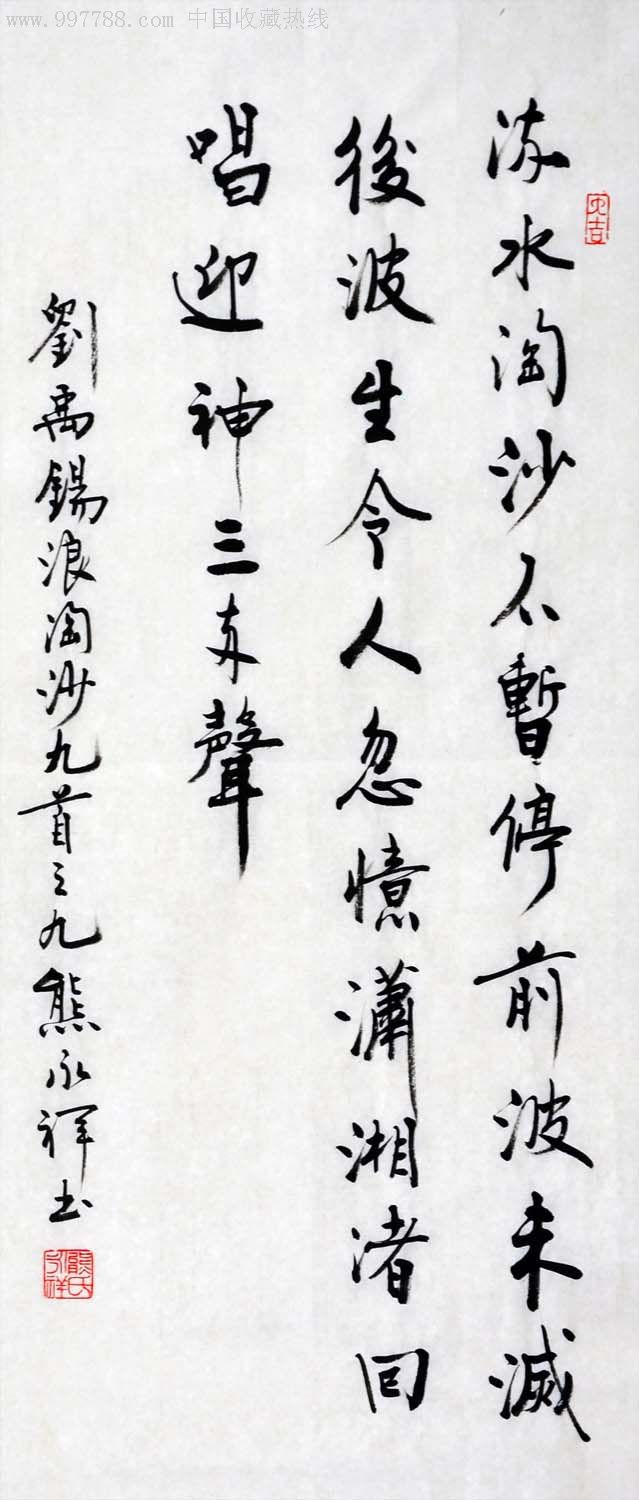 www.997788.com 中国收藏热线
流水淘沙不暫停前波未滅
後波生令人忽憶瀟湘渚回
唱迎神三兩聲
劉禹錫浪淘沙九首之九熊永祥书